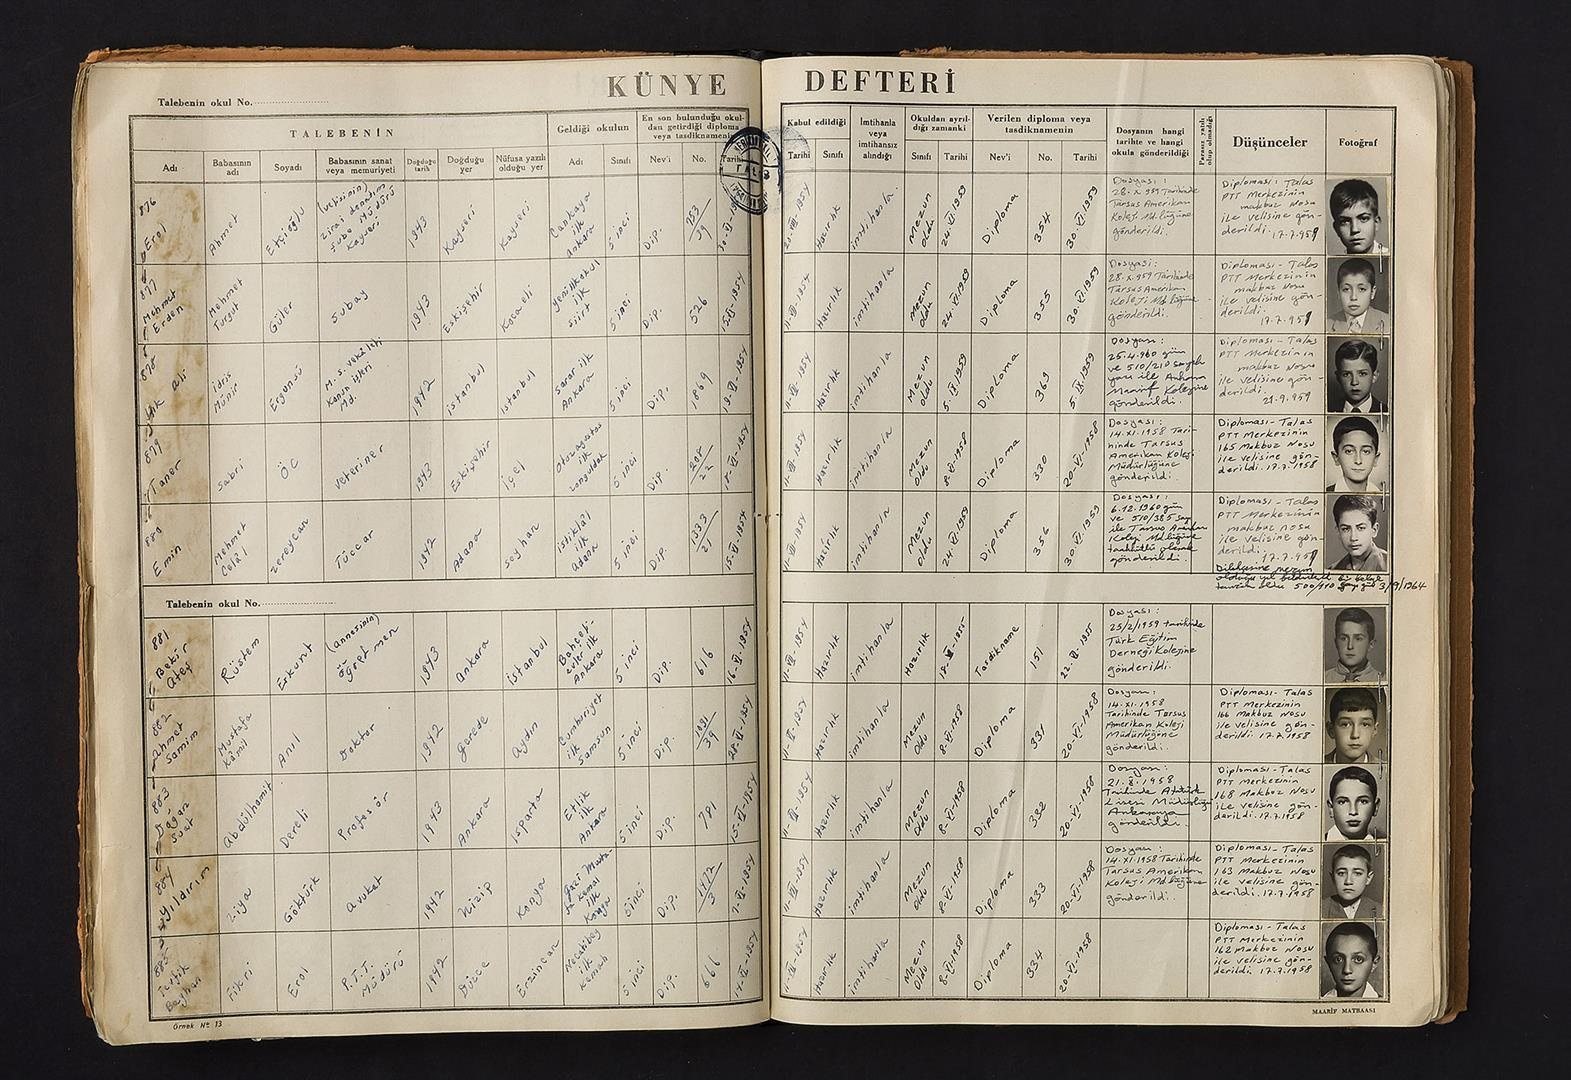 KÜNYE DEFTERİ
Talebenin okul No.
TALEBENİN
Geldiği okulun
En son bulunduğu okul-
dan getirdiği diploma
veya tasdiknamenin
Adı
Babasının
adı
Soyadı
Babasının sanat
veya memuriyeti
Doğduğu
tarih
Doğduğu
yer
Nüfusa yazılı
olduğu yer
Adı
Sınıfı
Nev'i
No.
Tarihi
Kabul edildiği
Tarihi
Sınıfı
İmtihanla
veya
imtihansız
alındığı
Okuldan ayrıl-
dığı zamanki
Sınıfı
Tarihi
Verilen diploma veya
tasdiknamenin
Nev'i
No.
Tarihi
Dosyanın hangi
tarihte ve hangi
okula gönderildiği
Parasız yatılı
olup olmadığı
Düşünceler
Fotoğraf
876
Erol
Ahmet
Etçioğlu
(velisinin)
zirai donatım
Şube Müdürü
Kayseri
1943
Kayseri
Kayseri
Çankaya
ilk
Ankara
5 inci
Dip.
953/39
Hazırlık
imtihanla
Mezun
oldu
24.VI.1959
Diploma
354
30.VI.1959
Dosyası :
28.X.959 Tarihinde
Tarsus Amerikan
Koleji Md.lüğüne
gönderildi.
Diploması: Talas
PTT Merkezinin
makbuz Nosu
ile velisine gön-
derildi. 17.7.959
877
Mehmet
Erden
Mehmet
Turgut
Güler
Subay
1943
Eskişehir
Kocaeli
Yeniilkokul
ilk
Siirt
5 inci
Dip.
526
11-VIII-1954
Hazırlık
imtihanla
Mezun
oldu
24.VI.1959
Diploma
355
30.VI.1959
Dosyası:
28.X.959 Tarihinde
Tarsus Amerikan
Koleji Md.lüğüne
gönderildi.
Diploması - Talas
PTT Merkezinin
makbuz Nosu
ile velisine gön-
derildi.
17.7.959
878
Ali
İdris
Münir
Ergünsü
M.S. Vekâleti
Kanun işleri
Md.
1942
İstanbul
İstanbul
Sarar ilk
Ankara
5 inci
Dip.
1869
19-VI-1954
11-VIII-1954
Hazırlık
imtihanla
Mezun
oldu
5.IX.1959
Diploma
369
5.IX.1959
Dosyası :
25.4.960 gün
ve 510/210 sayılı
yazı ile Ankara
Maarif Kolejine
gönderildi.
Diploması - Talas
PTT Merkezinin
makbuz Nosu
ile velisine gön-
derildi.
21.9.959
879
Taner
Sabri
ÖC
Veteriner
1943
Eskişehir
İçel
Otuzağustos
ilk
Zonguldak
5 inci
Dip.
11-VIII-1954
Hazırlık
imtihanla
Mezun
oldu
8-VI-1958
Diploma
330
20-VI-1958
Dosyası:
14.XI.1958 Tari-
hinde Tarsus
Amerikan Koleji
Müdürlüğüne
gönderildi.
Diploması - Talas
PTT Merkezinin
165 Makbuz Nosu
ile velisine gön-
derildi. 17.7.1958
880
Emin
Mehmet
Celâl
Zereycan
Tüccar
1942
Adana
Seyhan
İstiklâl
ilk
Adana
5 inci
Dip.
1333/21
15-VI-1954
11-VIII-1954
Hazırlık
imtihanla
Mezun
oldu
24.VI.1959
Diploma
356
30.VI.1959
Dosyası:
6.12.1960 gün
ve 510/385 sayı
ile Tarsus Amerikan
Koleji Md.lüğüne
taahhütlü olarak
gönderildi.
Diploması - Talas
PTT Merkezinin
makbuz nosu
ile velisine gön-
derildi.
17.7.959
3/9/1964
Talebenin okul No.
881
Bekir
Ateş
Rüstem
Eskunt
(annesinin)
Öğretmen
1943
Ankara
İstanbul
Bahçeli-
evler ilk
Ankara
5 inci
Dip.
616
16-VI-1954
11-VIII-1954
Hazırlık
imtihanla
Hazırlık
Tasdikname
151
Dosyası :
25/2/1959 tarihinde
Türk Eğitim
Derneği Kolejine
gönderildi.
882
Ahmet
Samim
Mustafa
Kâmil
Anıl
Doktor
1942
Gerede
Aydın
Cumhuriyet
ilk
Samsun
5 inci
Dip.
1981/39
28-VI-1954
11-VIII-1954
Hazırlık
imtihanla
Mezun
oldu
8-VI-1958
Diploma
331
20-VI-1958
Dosyası :
14.XI.1958
Tarihinde Tarsus
Amerikan Koleji
Müdürlüğüne
gönderildi.
Diploması - Talas
PTT Merkezinin
166 Makbuz Nosu
ile velisine gön-
derildi. 17.7.1958
883
Doğan
Suat
Abdülhamit
Dereli
Profesör
1943
Ankara
Isparta
Etlik
ilk
Ankara
5 inci
Dip.
781
15-VI-1954
11-VIII-1954
Hazırlık
imtihanla
Mezun
oldu
8-VI-1958
Diploma
332
20-VI-1958
Dosyası :
21.X.1958
Tarihinde Atatürk
Lisesi Müdürlüğü
Ankaraya
gönderildi.
Diploması - Talas
PTT Merkezinin
168 Makbuz Nosu
ile velisine gön-
derildi. 17.7.1958
884
Yıldırım
Ziya
Göktürk
Avukat
1942
Nizip
Konya
Gazi Musta-
fa Kemal
ilk
Konya
5 inci
Dip.
1472/3
7-VI-1954
11-VIII-1954
Hazırlık
imtihanla
Mezun
oldu
8-VI-1958
Diploma
333
20-VI-1958
Dosyası :
14.XI.1958 Tarihinde
Tarsus Amerikan
Koleji Md.lüğüne
gönderildi.
Diploması - Talas
PTT Merkezinin
163 Makbuz Nosu
ile velisine gön-
derildi. 17.7.1958
885
Tevfik
Beyhan
Fikri
Erol
P.T.T.
Müdürü
1942
Düzce
Erzincan
Necatibey
ilk
Kemah
5 inci
Dip.
666
14-VI-1954
11-VIII-1954
Hazırlık
imtihanla
Mezun
oldu
8-VI-1958
Diploma
334
20-VI-1958
Diploması - Talas
PTT Merkezinin
162 Makbuz Nosu
ile velisine gön-
derildi. 17.7.1958
Örnek Nº 13
MAARİF MATBAASI